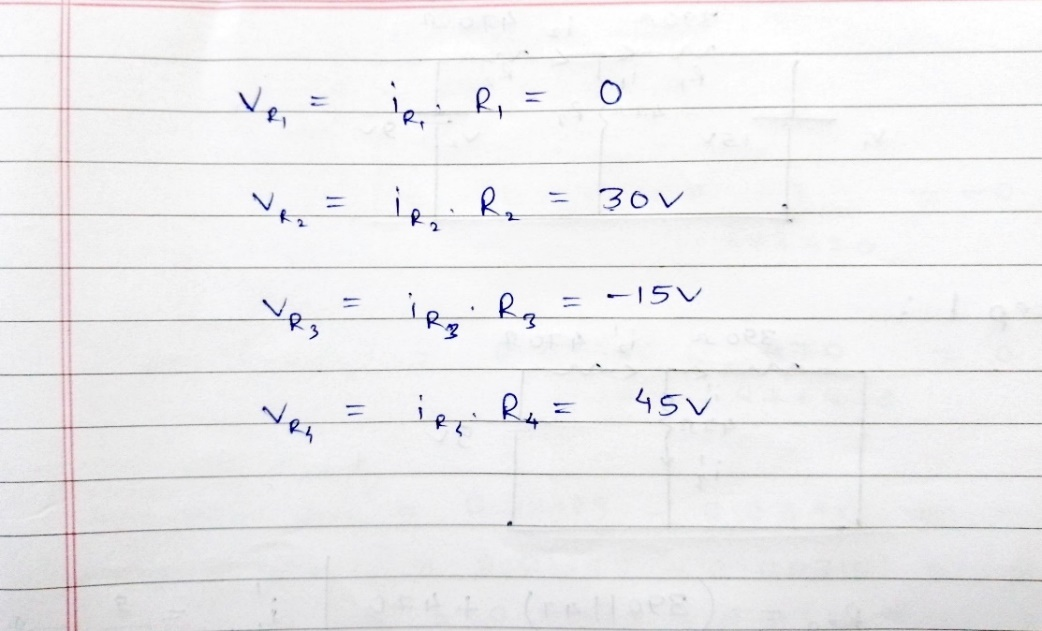 V_R₁ = i_R₁ . R₁ = 0
V_R₂ = i_R₂ . R₂ = 30V
V_R₃ = i_R₃ . R₃ = -15V
V_R₄ = i_R₄ . R₄ = 45V